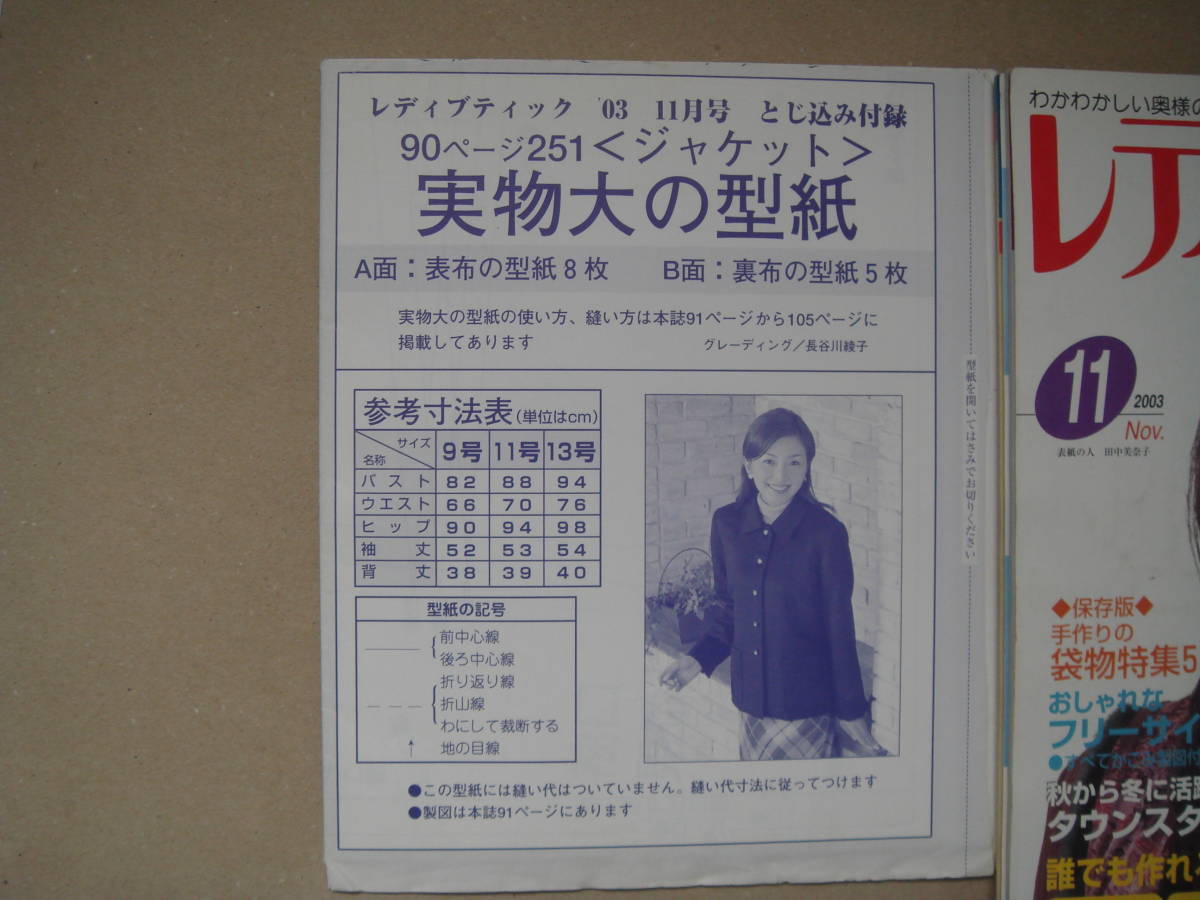 レディブティック '03 11月号 とじ込み付録
90ページ251＜ジャケット＞
実物大の型紙
A面：表布の型紙8枚 B面：裏布の型紙5枚
実物大の型紙の使い方、縫い方は本誌91ページから105ページに
掲載してあります
グレーディング／長谷川綾子
参考寸法表(単位はcm)
サイズ 名称 9号 11号 13号
バスト 82 88 94
ウエスト 66 70 76
ヒップ 90 94 98
袖丈 52 53 54
背丈 38 39 40
型紙の記号
前中心線
後ろ中心線
折り返り線
折山線
わにして裁断する
地の目線
●この型紙には縫い代はついていません。縫い代寸法に従ってつけます
●製図は本誌91ページにあります
型紙を開いてはさみでお切りください
わかわかしい奥様の
レデ
11
2003
Nov.
表紙の人 田中美奈子
◆保存版◆
手作りの
袋物特集5
おしゃれな
フリーサイ
秋から冬に活躍
タウンスタ
誰でも作れ